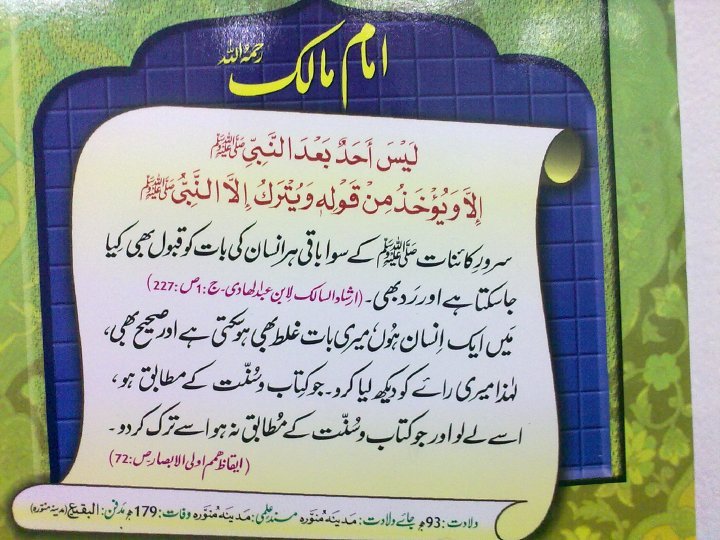 امام مالک رحمہُ اللہ
لَيْسَ أَحَدٌ بَعْدَ النَّبِيِّ ﷺ
إِلَّا وَيُؤْخَذُ مِنْ قَوْلِهِ وَيُتْرَكُ إِلَّا النَّبِيُّ ﷺ
سرورِ کائنات ﷺ کے سوا باقی ہر انسان کی بات کو قبول بھی کیا
جاسکتا ہے اور رَد بھی۔ (ارشاد السالک لابن عبدالھادی۔ج:1ص:227)
مَیں ایک اِنسان ہُوں میری بات غلط بھی ہوسکتی ہے اور صحیح بھی،
لہٰذا میری رائے کو دیکھ لیا کرو۔ جو کِتاب وسُنّت کے مطابق ہو،
اسے لے لو اور جو کتاب وسُنّت کے مُطابق نہ ہو اسے ترک کردو۔
(ایقاظ ھمم اولی الابصار ص:72)
ولادت: 93ھ جائے ولادت: مَدینہ مُنوّرہ مسندِ علمی: مَدینہ مُنوّرہ وفات: 179ھ مَدفن: البقیع (مدینہ منورہ)